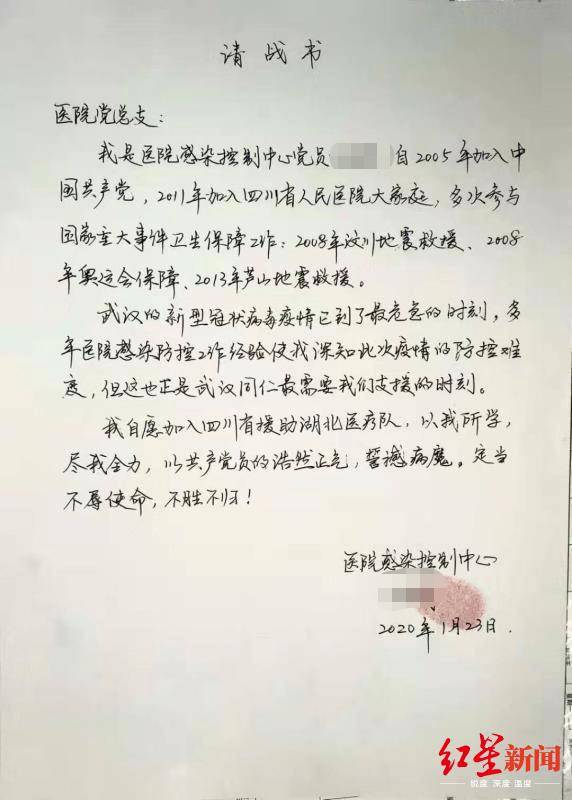 请战书
医院党总支：
我是医院感染控制中心党员 自2005年加入中
国共产党，2011年加入四川省人民医院大家庭，多次参与
国家重大事件卫生保障工作：2008年汶川地震救援、2008
年奥运会保障、2013年芦山地震救援。
武汉的新型冠状病毒疫情已到了最危急的时刻，多
年医院感染防控工作经验使我深知此次疫情的防控难
度，但这也正是武汉同仁最需要我们支援的时刻。
我自愿加入四川省援助湖北医疗队，以我所学，
尽我全力，以共产党员的浩然正气，誓撼病魔。定当
不辱使命，不胜不归！
医院感染控制中心
2020年1月23日.
红星新闻
锐度 深度 温度